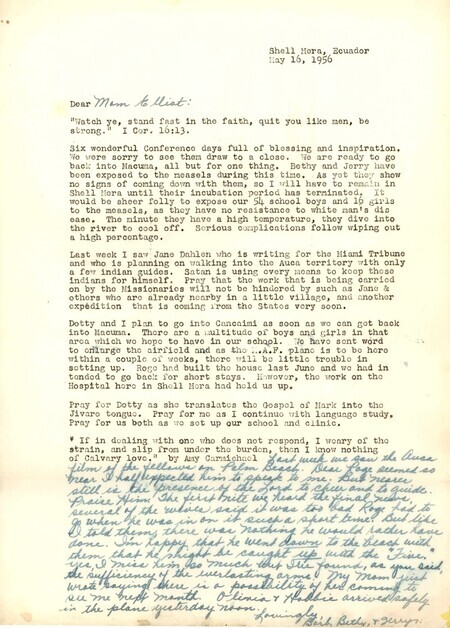 Shell Mera, Ecuador
May 16, 1956
Dear Mom Elliot:
"Watch ye, stand fast in the faith, quit you like men, be
strong." I Cor. 16:13.
Six wonderful Conference days full of blessing and inspiration.
We were sorry to see them draw to a close. We are ready to go
back into Macuma, all but for one thing. Bethy and Jerry have
been exposed to the measels during this time. As yet they show
no signs of coming down with them, so I will have to remain in
Shell Mera until their incubation period has terminated. It
would be sheer folly to expose our 54 school boys and 16 girls
to the measels, as they have no resistance to white man's dis
ease. The minute they have a high temperature, they dive into
the river to cool off. Serious complications follow wiping out
a high percentage.
Last week I saw Jane Dahlen who is writing for the Miami Tribune
and who is planning on walking into the Auca territory with only
a few indian guides. Satan is using every means to keep these
Indians for himself. Pray that the work that is being carried
on by the Missionaries will not be hindered by such as Jane &
others who are already nearby in a little village, and another
expedition that is coming from the States very soon.
Dotty and I plan to go into Cancaimi as soon as we can get back
into Macuma. There are a multitude of boys and girls in that
area which we hope to have in our school. We have sent word
to enlarge the airfield and as the M.A.F. plane is to be here
within a couple of weeks, there will be little trouble in
setting up. Roge had built the house last June and we had in
tended to go back for short stays. However, the work on the
Hospital here in Shell Mera had held us up.
Pray for Dotty as she translates the Gospel of Mark into the
Jivaro tongue. Pray for me as I continue with language study.
Pray for us both as we set up our school and clinic.
" If in dealing with one who does not respond, I weary of the
strain, and slip from under the burden, then I know nothing
of Calvary love." by Amy Carmichael Last week we saw the Auca
film of the fellows on Palm Beach. Dear Roge seemed so
near I half expected him to speak to me. But nearer
still is the presence of the Lord to cheer and to guide.
Praise Him! The first nite we heard the final news
several of the said it was too bad Roge had to
go when he was in on it such a short time. But like
I told them, there was nothing he would rather have
done. I'm happy that he went down to the beach with
them that he might be caught up with the "Five."
Yes, I miss him so much but I've found, as you said,
the sufficiency of the everlasting arms! My Mom just
wrote saying there is a possibility of her coming to
see me next month. Olive and arrived safely
in the plane yesterday noon.
Lovingly
Barb, Bethy, & Jerry.